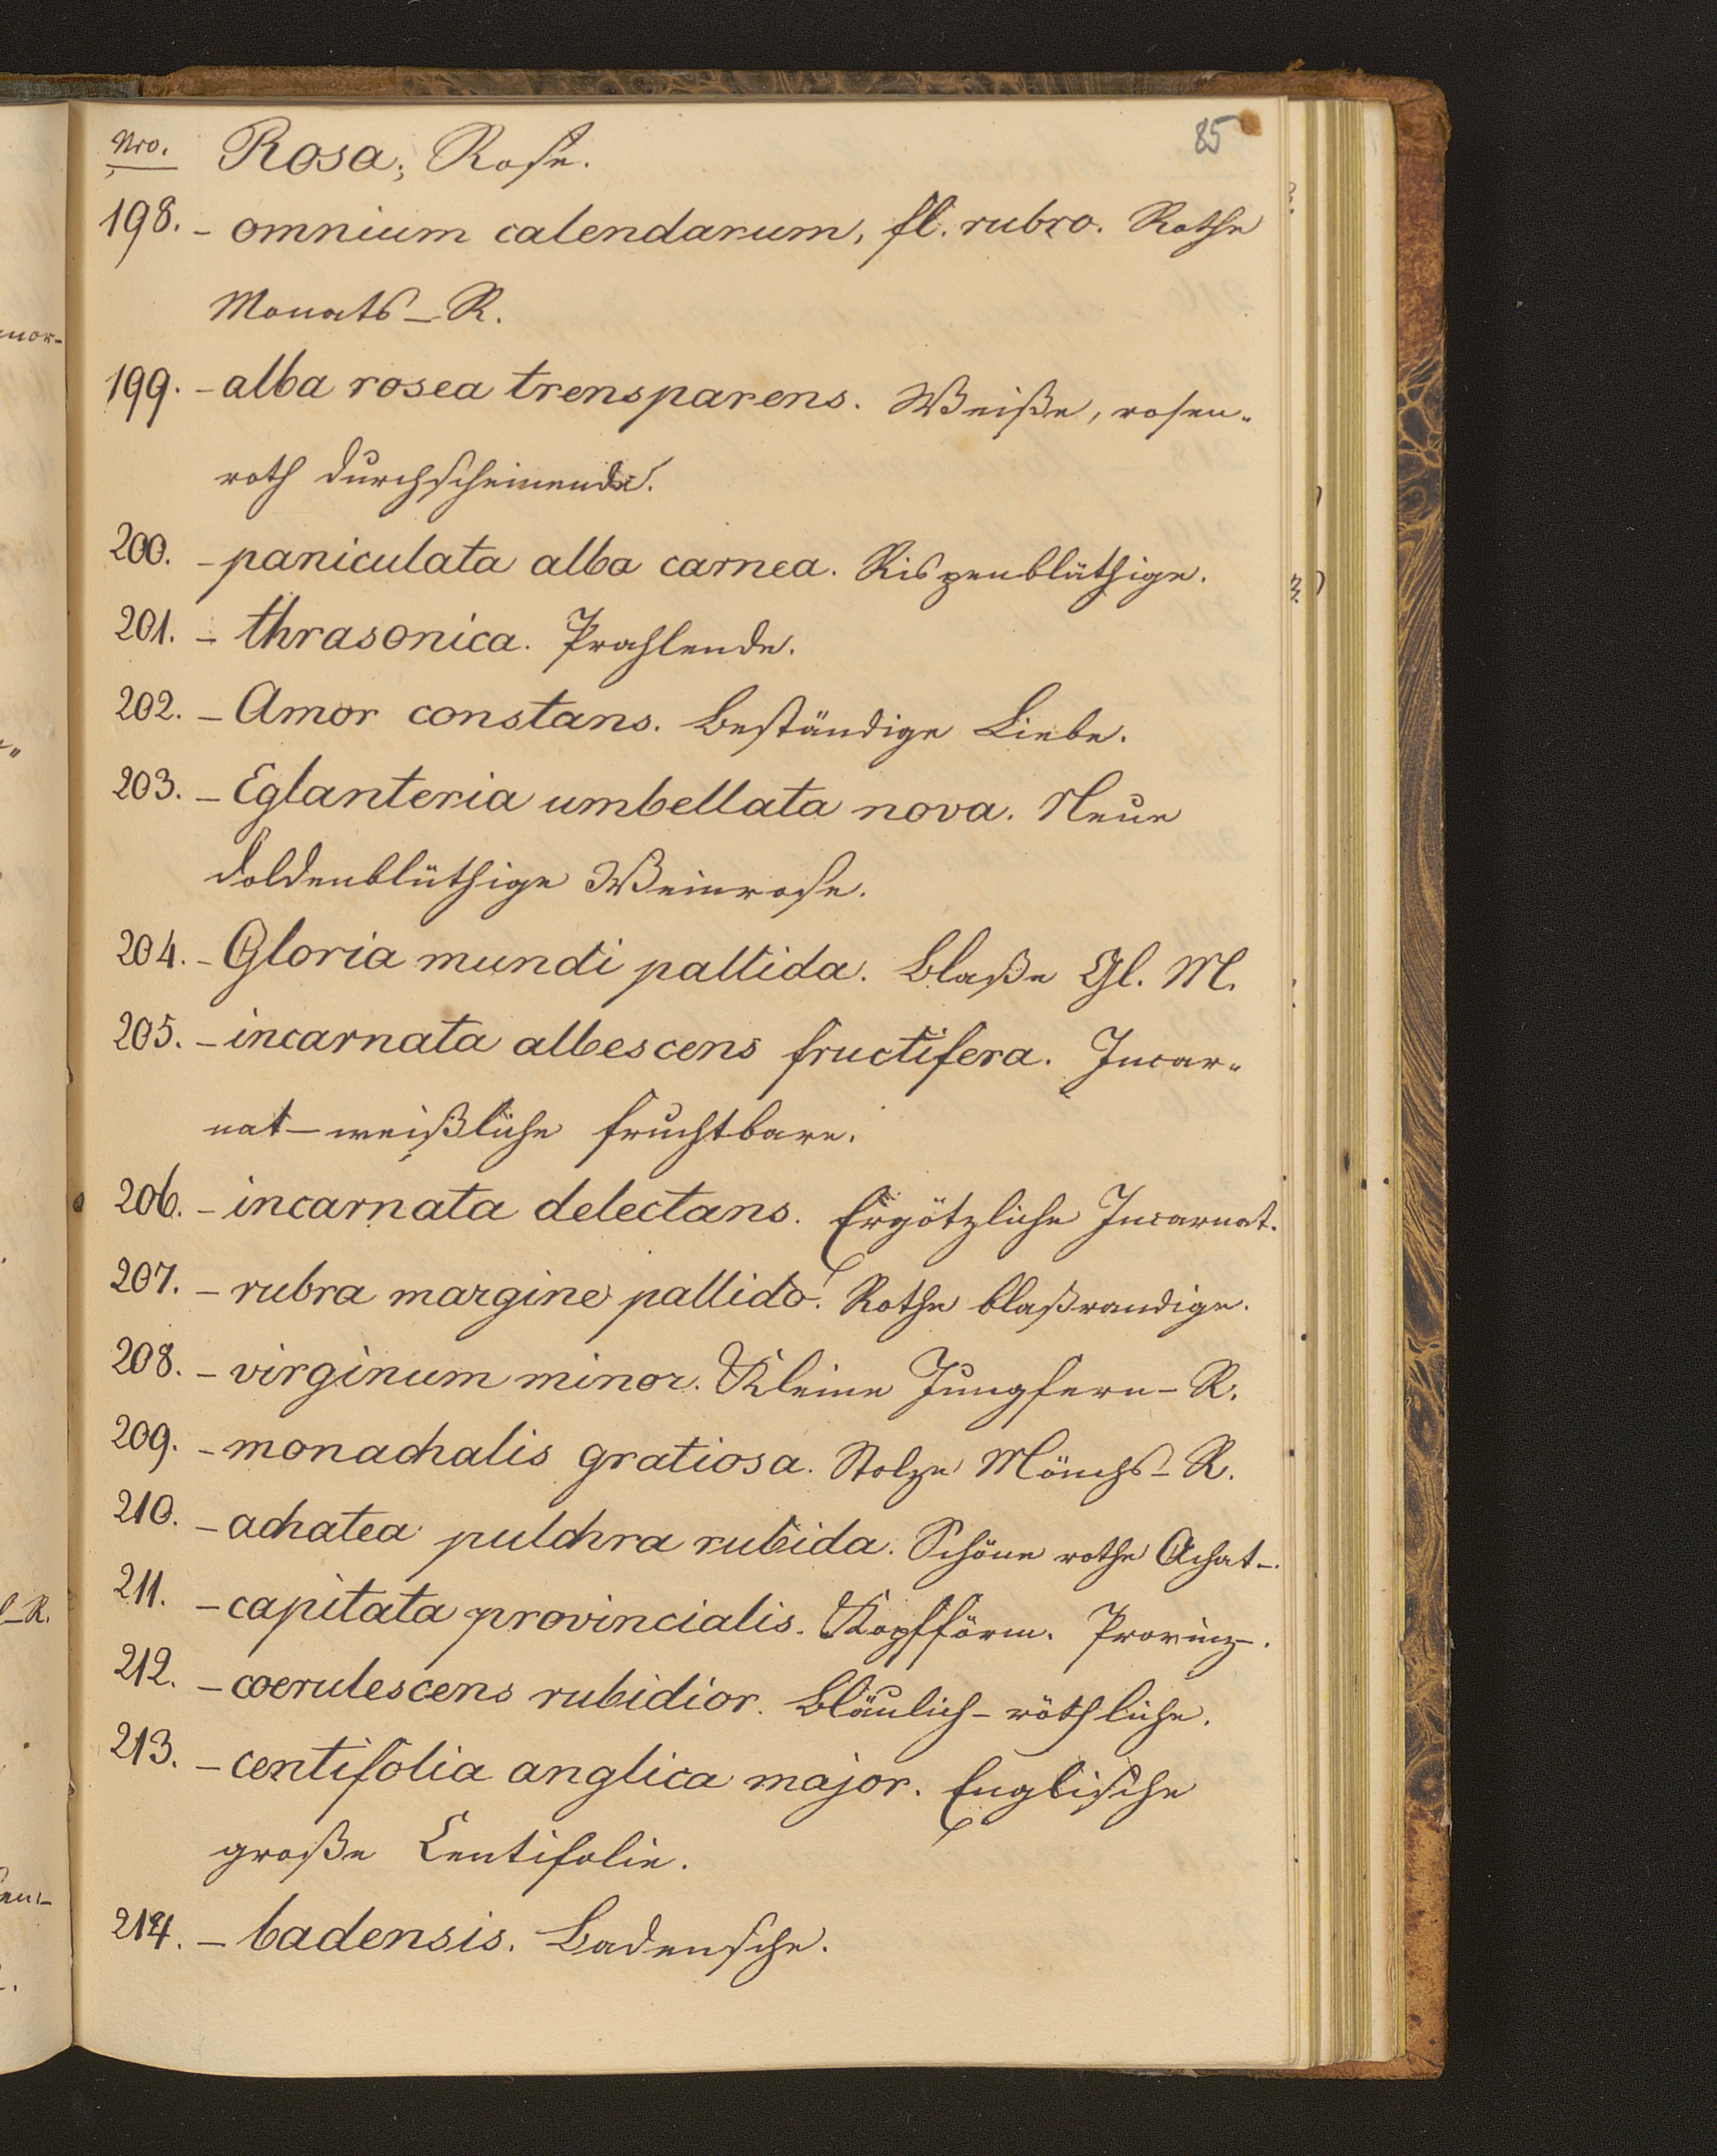 85
Nro. Rosa; Rose.
198. - omnium calendarum, fl. rubro. Rothe
Monats-R.
199. - alba rosea trensparens. Weiße, rosen-
roth durchscheinende.
200. - paniculata alba carnea. Rispenblüthige.
201. - thrasonica. Prahlende.
202. - Amor constans. Beständige Liebe.
203. - Eglanteria umbellata nova. Neue
doldenblüthige Weinrose.
204. - Gloria mundi pallida. Blaße Gl. M.
205. - incarnata albescens fructifera. Incar-
nat-weißliche fruchtbare.
206. - incarnata delectans. Ergötzliche Incarnat.
207. - rubra margine pallido. Rothe blaßrandige.
208. - virginum minor. Kleine Jungfern-R.
209. - monachalis gratiosa. Stolze Mönchs-R.
210. - achatea pulchra rubida. Schöne rothe Achat-.
211. - capitata provincialis. Kopfförm. Provinz-.
212. - coerulescens rubidior. Bläulich-röthliche.
213. - centifolia anglica major. Englische
große Centifolie.
214. - badensis. Badensche.